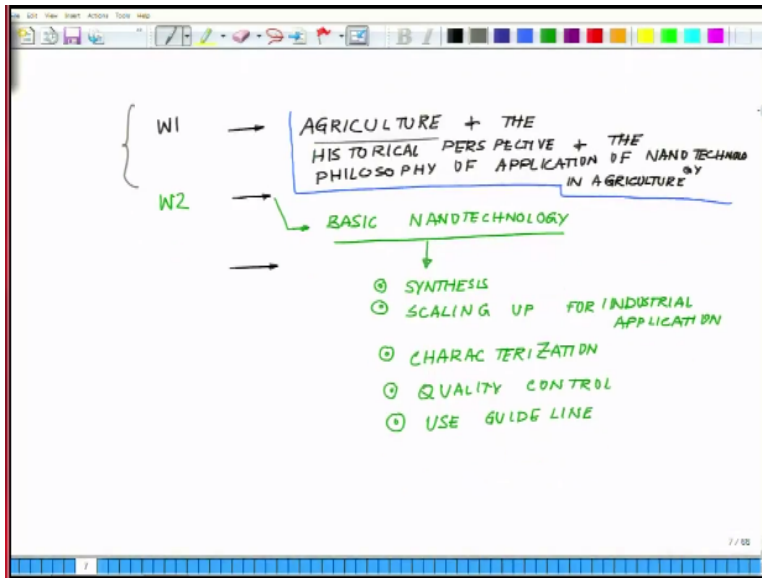 Edit View Insert Actions Tools Help
B I
W1 → AGRICULTURE + THE
HISTORICAL PERSPECTIVE + THE
PHILOSOPHY OF APPLICATION OF NANOTECHNOLOGY
IN AGRICULTURE
W2 →
BASIC NANOTECHNOLOGY
SYNTHESIS
SCALING UP FOR INDUSTRIAL
APPLICATION
CHARACTERIZATION
QUALITY CONTROL
USE GUIDE LINE
7 / 68
7